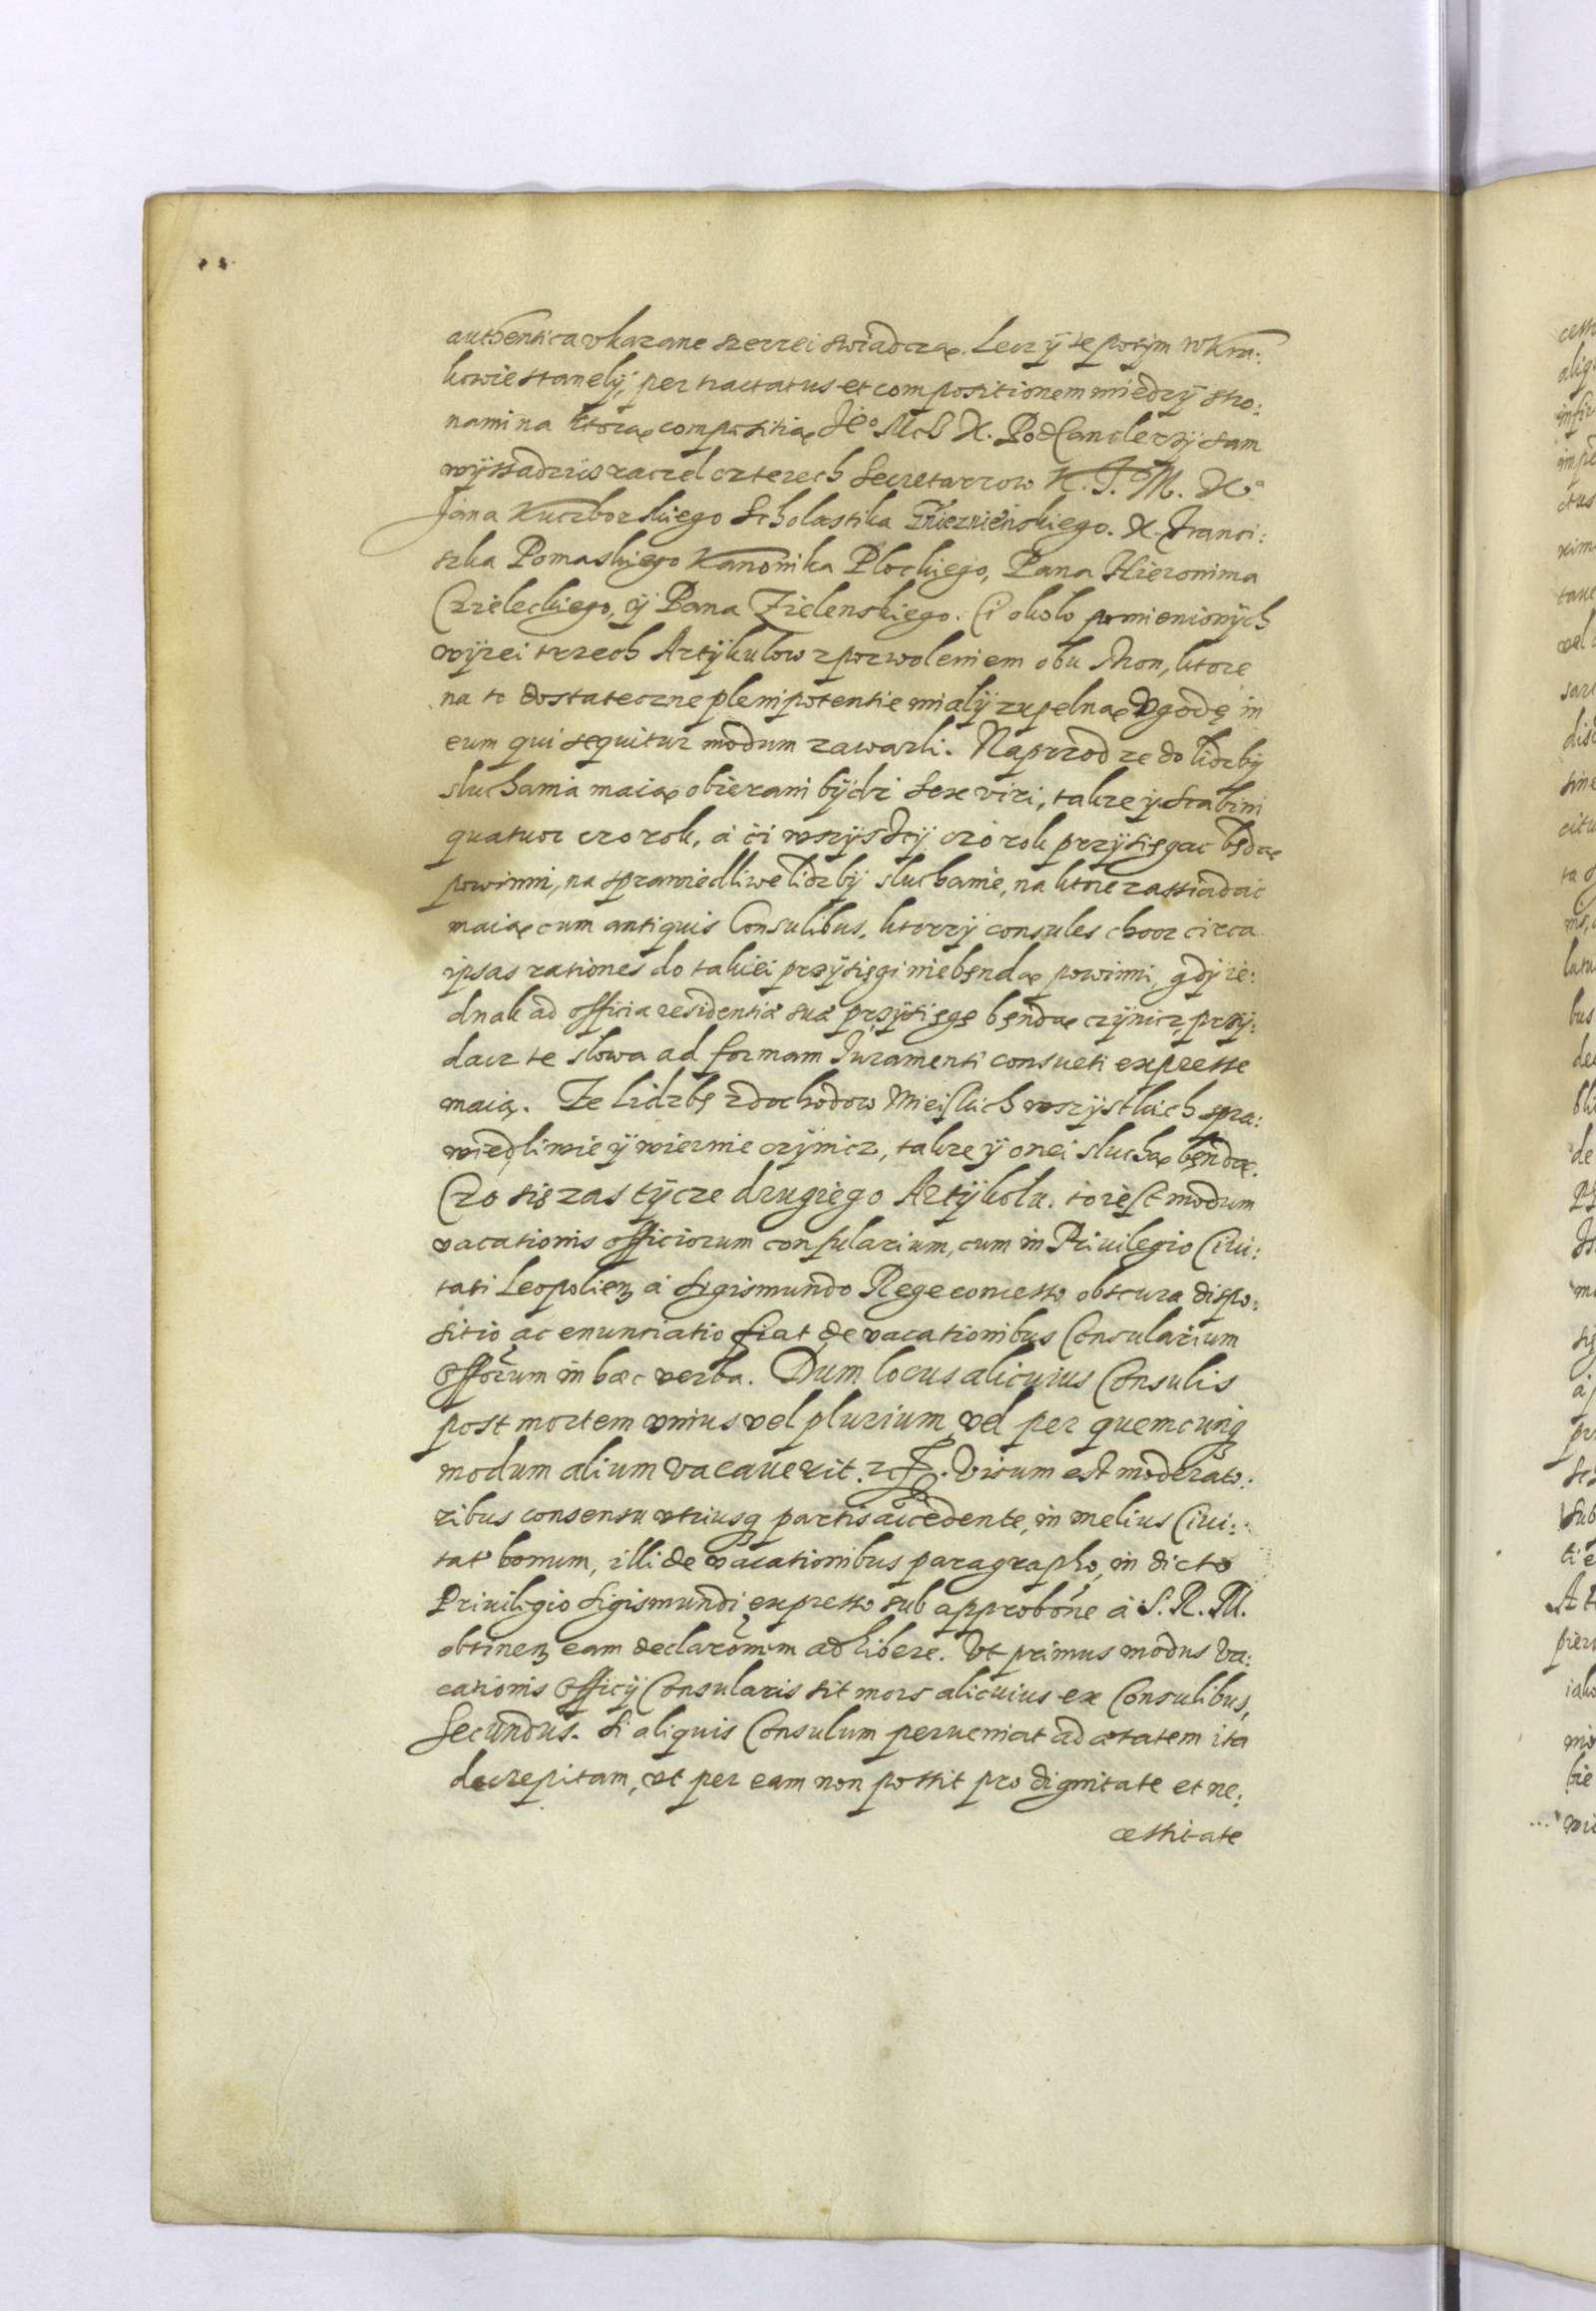 authentica vkazane szerzei swiadczą. Lecz ÿ te potÿm w Kra:
kowie stanelÿ, per tractatus et compositionem miedzÿ stro:
nami na ktorą compositią Je° Mcz X. PodCanclerzÿ sam
wÿssadziws raczel czterech Secretarzow K. J. M. Xa
Jana Kuczborskiego Scholastika Gnieznienskiego. X. Franci:
szka Pomaskiego Kanonika Plockiego, Pana Hieronima
Czieleckiego, ÿ Pana Zielenskiego. Ci około pomienionÿch
wÿzei trzech Artÿkulow z pozwoleniem obu stron, ktore
na to dostateczne plenipotentie mialÿ zupelną Vgodę in
eum qui sequitur modum zawarli. Naprzod ze do lidzbÿ
sluchania maią obierani bÿdz sex viri, takze ÿ Scabini
quatuor czo rok, á ći wszÿsczÿ czo rok przÿsięgac będą
powinni, na sprawiedliwe lidzbÿ sluchanie, na ktore zassiadac
maią cum antiquis Consulibus, ktorzÿ consules choc circa
ipsas rationes do takiei przÿsięgi niebęndą powinni, gdÿ ie:
dnak ad officia residentiæ suæ przÿsięgę będą czÿnicz, przÿ:
dacz te slowa ad formam Juramenti consueti expresse
maią. Ze Lidzbę z dochodow Mieiskich wszÿstkich spra:
wiedliwie ÿ wiernie czÿnicz, takze ÿ onei sluchac bęndą.
Czo się zas tÿcze drugiego Artÿkolu. to iest modum
vacationis officiorum consularium, cum in Priuilegio Ciui:
tati Leopolien á Sigismundo Rege concesso obscura dispo:
sitio ac enuntiatio fiat de vacationibus Consularium
Offorum in hæc verba. Dum locus alicuius Consulis
post mortem vnius vel plurium, vel per quemcunq
modum alium vacauerit. Visum est moderato:
ribus consensu vtriusq partis accedente, in melius Ciui:
tatis bonum, illi de vacationibus paragrapho, in dicto
Priuilegio Sigismundi expresso sub approbone á S. R. M.
obtinen eam declaronem adhibere. Vt primus modus va:
cationis Officÿ Consularis sit mors alicuius ex Consulibus,
Secundus. Si aliquis Consulum perueniat ad ætatem ita
decrepitam, vt per eam non possit pro dignitate et ne:
cessitate